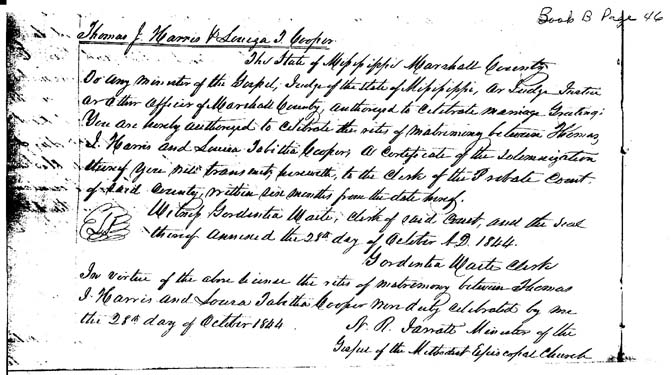 Book B Page 46
Thomas J. Harris & Louiza T. Cooper
The State of Mississippi Marshall County
To any Minister of the Gospel, Judge of the State of Mississippi, or Judge Justice
or other officer of Marshall County, authorized to celebrate marriage Greeting:
You are hereby authorized to celebrate the rites of matrimony between Thomas
J. Harris and Louisa Tabitha Cooper, a Certificate of the Solemnization
thereof you will transmit, herewith, to the Clerk of the Probate Court
of said County, within six months from the date hereof.
Witness Gordentia Waite, Clerk of said Court, and the seal
thereof annexed the 28th day of October A.D. 1844.
Gordentia Waite Clerk
In virtue of the above license the rites of matrimony between Thomas
J. Harris and Louisa Tabitha Cooper were duly celebrated by me
the 28th day of October 1844
N. R. Jarratt Minister of the
Gospel of the Methodist Episcopal Church